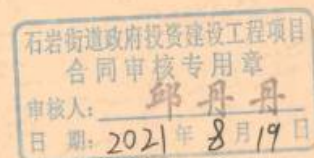 石岩街道政府投资建设工程项目
合同审核专用章
审核人：邱丹丹
日期：2021年8月19日